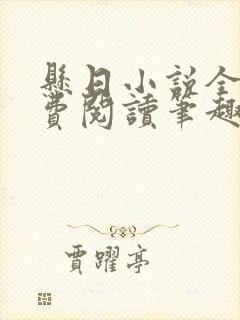 懸日小說全
費閱讀筆趣
賈躍亭